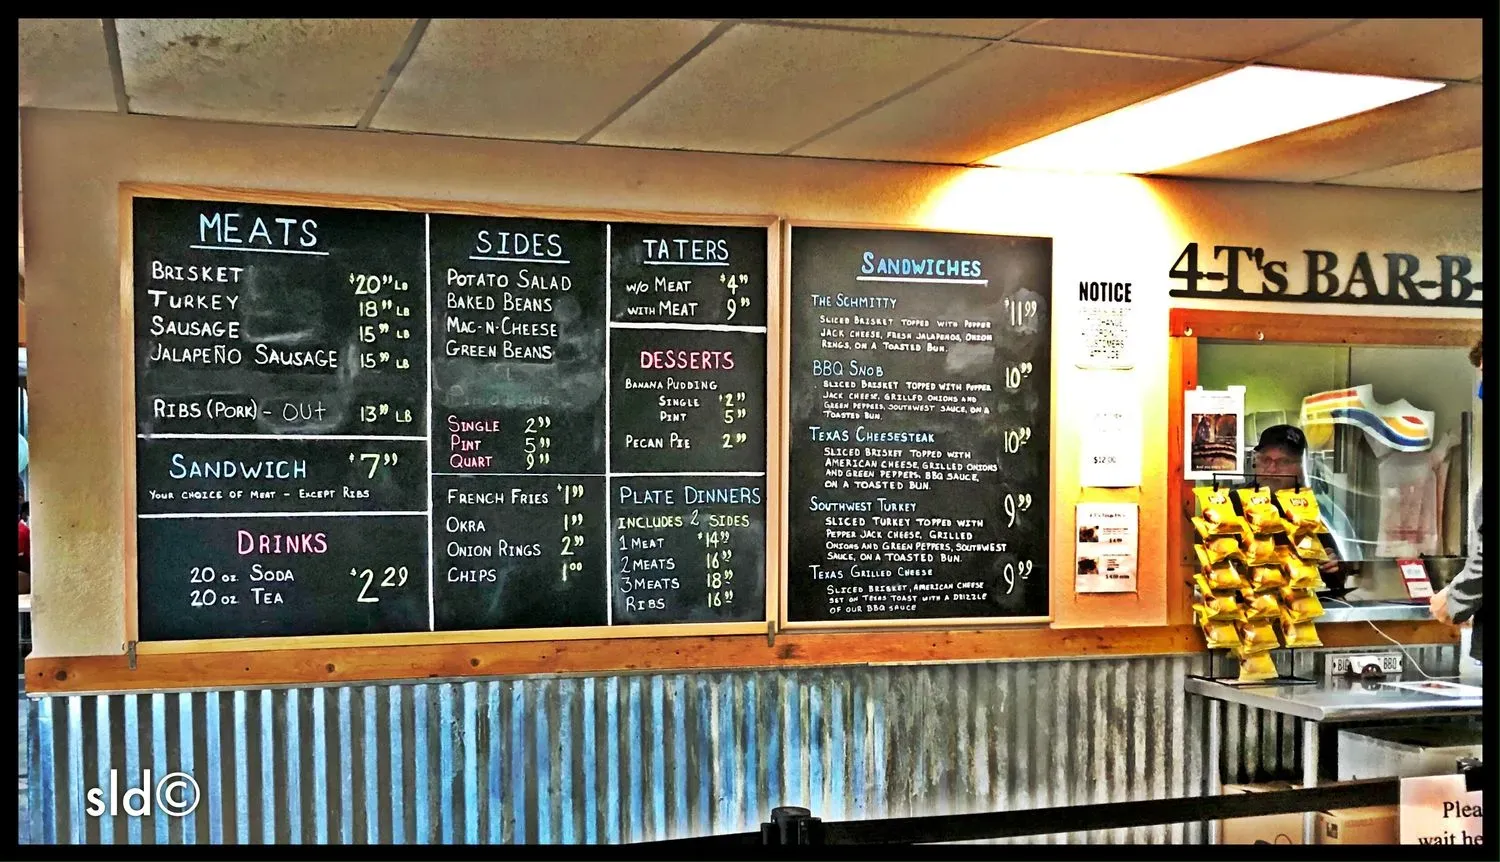 MEATS
BRISKET $20.99 LB
TURKEY 18.99 LB
SAUSAGE 15.99 LB
JALAPEÑO SAUSAGE 15.99 LB
RIBS (PORK) - OUT 13.99 LB
SANDWICH $7.99
YOUR CHOICE OF MEAT - EXCEPT RIBS
DRINKS
20 OZ. SODA
20 OZ TEA
$2.29
SIDES
POTATO SALAD
BAKED BEANS
MAC-N-CHEESE
GREEN BEANS
SINGLE 2.99
PINT 5.99
QUART 9.99
FRENCH FRIES $1.99
OKRA 1.99
ONION RINGS 2.99
CHIPS 1.00
TATERS
W/O MEAT $4.99
WITH MEAT 9.99
DESSERTS
BANANA PUDDING
SINGLE $2.99
PINT 5.99
PECAN PIE 2.99
PLATE DINNERS
INCLUDES 2 SIDES
1 MEAT $14.99
2 MEATS 16.99
3 MEATS 18.99
RIBS 16.99
SANDWICHES
THE SCHMITTY $11.99
SLICED BRISKET TOPPED WITH PEPPER
JACK CHEESE, FRESH JALAPENOS, ONION
RINGS, ON A TOASTED BUN.
BBQ SNOB 10.99
SLICED BRISKET TOPPED WITH PEPPER
JACK CHEESE, GRILLED ONIONS AND
GREEN PEPPERS, SOUTHWEST SAUCE, ON A
TOASTED BUN.
TEXAS CHEESESTEAK 10.99
SLICED BRISKET TOPPED WITH
AMERICAN CHEESE, GRILLED ONIONS
AND GREEN PEPPERS, BBQ SAUCE,
ON A TOASTED BUN.
SOUTHWEST TURKEY 9.99
SLICED TURKEY TOPPED WITH
PEPPER JACK CHEESE, GRILLED
ONIONS AND GREEN PEPPERS, SOUTHWEST
SAUCE, ON A TOASTED BUN.
TEXAS GRILLED CHEESE 9.99
SLICED BRISKET, AMERICAN CHEESE
SET ON TEXAS TOAST WITH A DRIZZLE
OF OUR BBQ SAUCE
NOTICE
$12.00
4-T's BAR-B-
BBQ
Plea
wait he
sld©